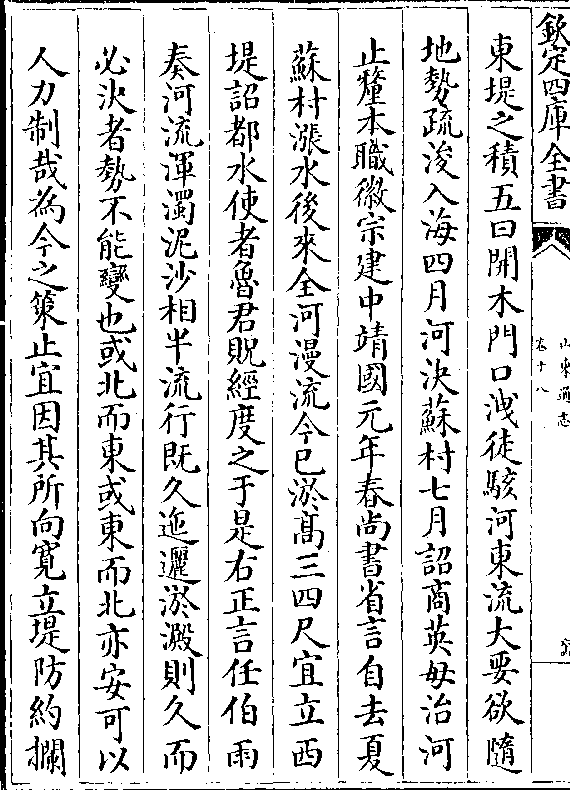 欽定四庫全書
山東通志
卷十八
東堤之積五曰開木門口洩徒駭河東流大要欲隨
地勢疏浚入海四月河決蘇村七月詔商英毋治河
止釐本職徽宗建中靖國元年春尚書省言自去夏
蘇村漲水後來全河漫流今已淤髙三四尺宜立西
堤詔都水使者魯君貺經度之于是右正言任伯雨
奏河流渾濁泥沙相半流行既久迤邐淤澱則久而
必決者勢不能變也或北而東或東而北亦安可以
人力制哉為今之䇿止宜因其所向寛立堤防約攔